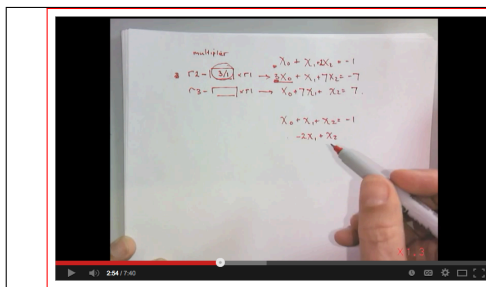 multiplier
X₀ + X₁ + 2X₂ = -1
r2 - 3/1 × r1 → 3X₀ + X₁ + 7X₂ = -7
r3 - × r1 → X₀ + 7X₁ + X₂ = 7
X₀ + X₁ + X₂ = -1
-2X₁ + X₂
X1.3
2:54 / 7:40